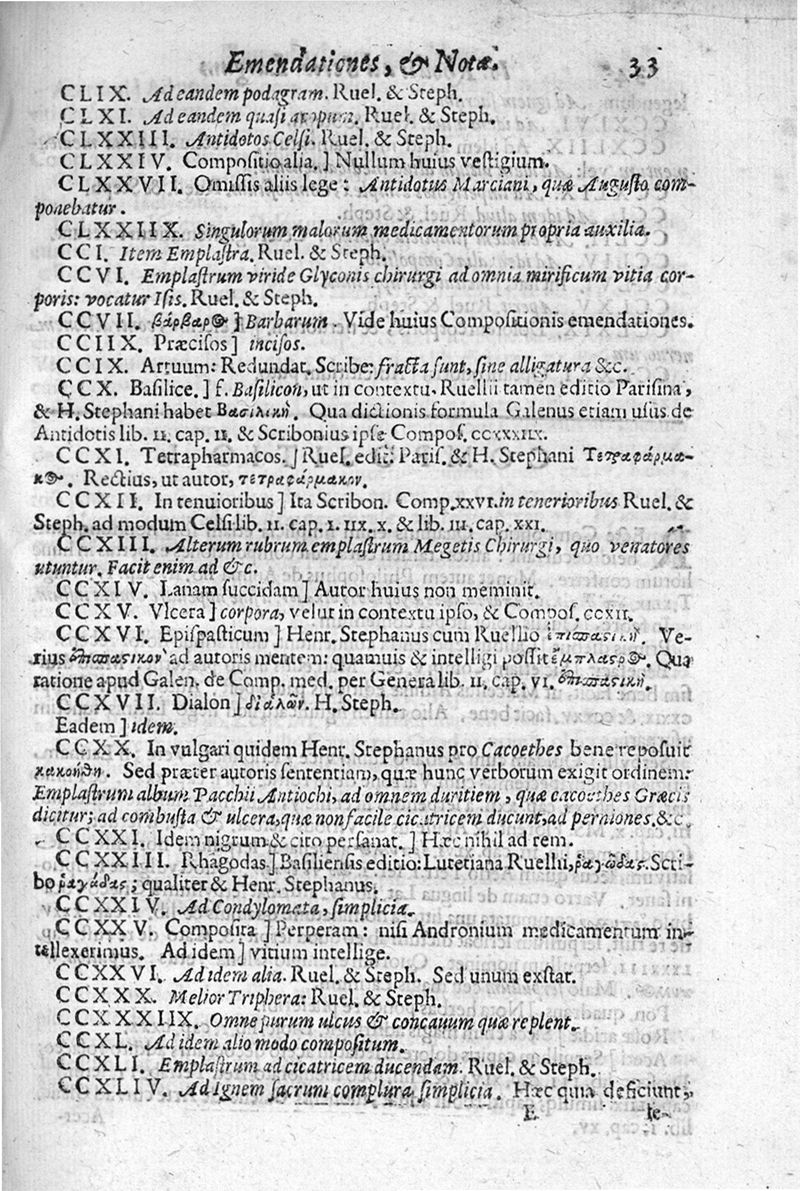 Emendationes, & Notæ. 33
CLIX. Ad eandem podagram. Ruel. & Steph.
CLXI. Ad eandem quasi Ruel. & Steph.
CLXXIII. Antidotos Celsi. Ruel. & Steph.
CLXXIV. Compositio alia.] Nullum huius vestigium.
CLXXVII. Omissis aliis lege: Antidotus Marciani, quæ Augusto com-
ponebatur.
CLXXIIX. Singulorum malorum medicamentorum propria auxilia.
CCI. Item Emplastra. Ruel. & Steph.
CCVI. Emplastrum viride Glyconis chirurgi ad omnia mirificum vitia cor-
poris: vocatur Isis. Ruel. & Steph.
CCVII. βάρβαρος] Barbarum. Vide huius Compositionis emendationes.
CCIIX. Præcisos] incisos.
CCIX. Artuum: Redundat. Scribe: fracta sunt, sine alligatura &c.
CCX. Basilice.] f. Basilicon, ut in contextu. Ruellii tamen editio Parisina,
& H. Stephani habet Βασιλικὴ. Qua dictionis formula Galenus etiam usus de
Antidotis lib. II. cap. II. & Scribonius ipse Compos. CCXXXIIX.
CCXI. Tetrapharmacos.] Ruel. edit. Paris. & H. Stephani Τετραφάρμα-
κος. Rectius, ut autor, τετραφάρμακον.
CCXII. In tenuioribus] Ita Scribon. Comp. XXVI. in tenerioribus Ruel. &
Steph. ad modum Celsi lib. II. cap. I. IIX. X. & lib. III. cap. XXI.
CCXIII. Alterum rubrum emplastrum Megetis Chirurgi, quo venatores
utuntur. Facit enim ad &c.
CCXIV. Lanam succidam] Autor huius non meminit.
CCXV. Vlcera] corpora, velut in contextu ipso, & Compos. CCXII.
CCXVI. Epispasticum] Henr. Stephanus cum Ruellio ἐπισπαστικὴ. Ve-
rius ἐπισπαστικὸν ad autoris mentem: quamuis & intelligi possit ἔμπλαστρος. Qua
ratione apud Galen. de Comp. med. per Genera lib. II. cap. VI. ἐπισπαστικὴ.
CCXVII. Dialon] διαλῶν. H. Steph.
Eadem] idem.
CCXX. In vulgari quidem Henr. Stephanus pro Cacoethes bene reposuit
κακοήθη. Sed præter autoris sententiam, quæ hunc verborum exigit ordinem:
Emplastrum album Pacchii Antiochi, ad omnem duritiem, quæ cacoethes Græcis
dicitur; ad combusta & ulcera, quæ non facile cicatricem ducunt, ad perniones. &c.
CCXXI. Idem nigrum & cito persanat.] Hæc nihil ad rem.
CCXXIII. Rhagodas] Basiliensis editio: Lutetiana Ruellii, ῥαγῶδας. Scri-
bo ῥαγάδας; qualiter & Henr. Stephanus.
CCXXIV. Ad Condylomata, simplicia.
CCXXV. Composita] Perperam: nisi Andronium medicamentum in-
tellexerimus. Ad idem] vitium intellige.
CCXXVI. Ad idem alia. Ruel. & Steph. Sed unum exstat.
CCXXX. Melior Triphera: Ruel. & Steph.
CCXXXIIX. Omne purum ulcus & concauum quæ replent.
CCXL. Ad idem alio modo compositum.
CCXLI. Emplastrum ad cicatricem ducendam. Ruel. & Steph.
CCXLIV. Ad Ignem sacrum complura simplicia. Hæc quia deficiunt,
E te-